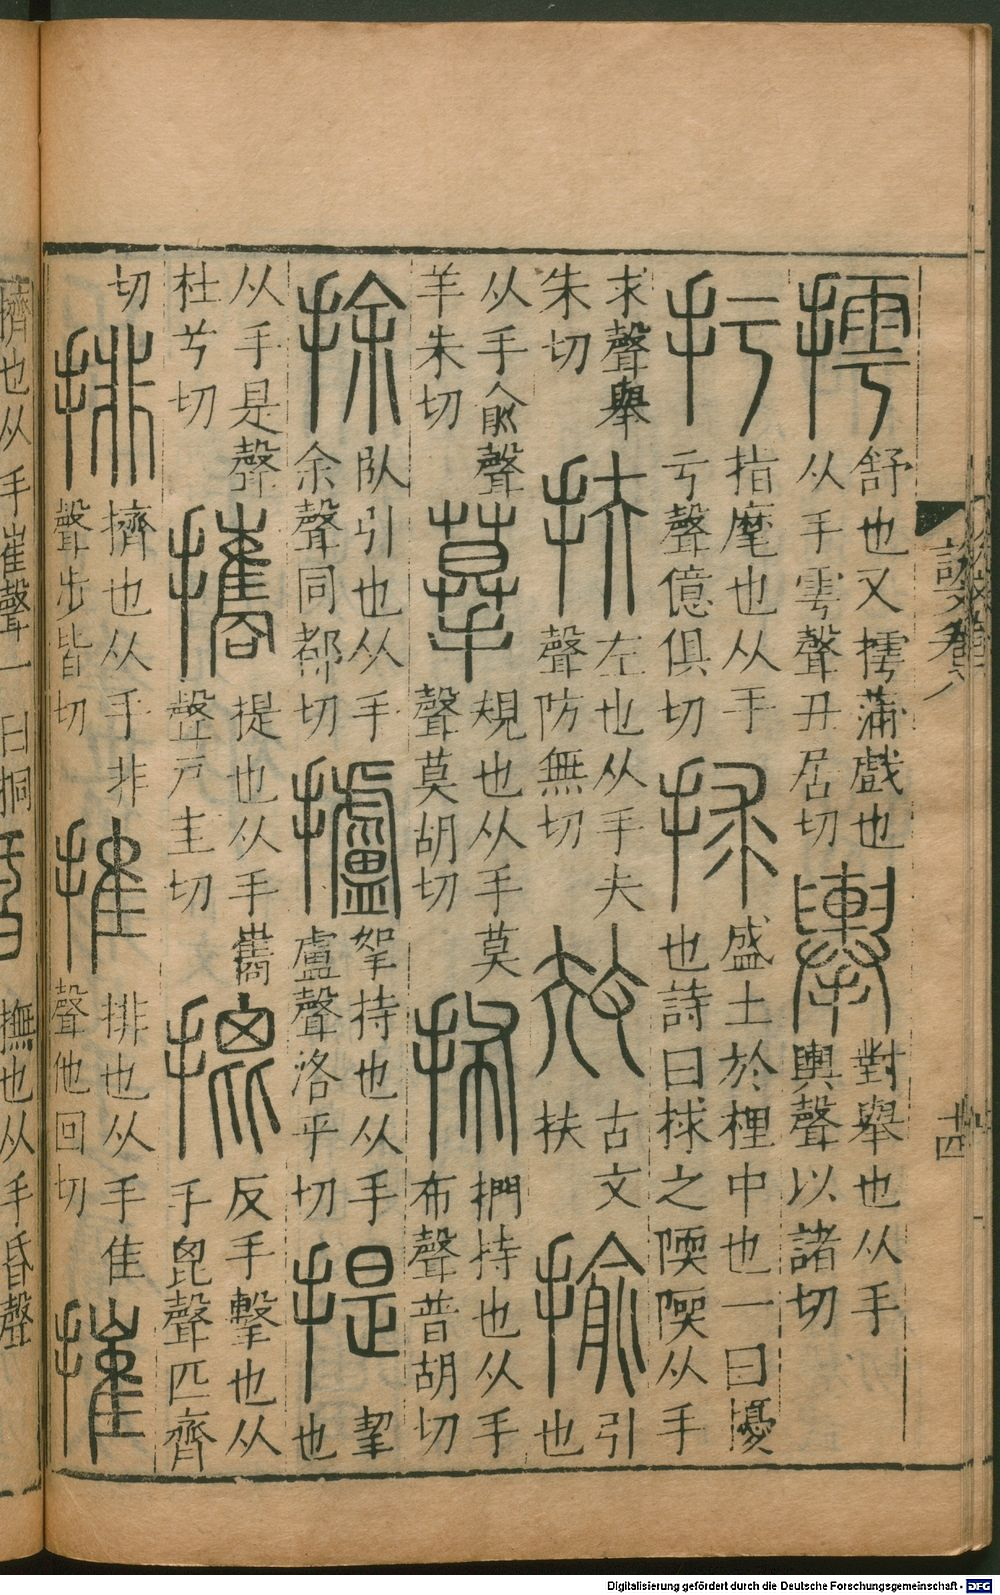 摴 舒也又摴蒲戲也从手雩聲丑居切 擧 對舉也从手輿聲以諸切
扝 指麾也从手亏聲億俱切 捄 盛土於梩中也一曰擾也詩曰捄之陾陾从手
求聲舉朱切 扶 左也从手夫聲防無切 古文扶 揄 引也
从手俞聲羊朱切 摹 規也从手莫聲莫胡切 抪 捫持也从手布聲普胡切
捈 臥引也从手余聲同都切 攎 挐持也从手盧聲洛乎切 提 挈也
从手是聲杜兮切 攜 提也从手巂聲戸圭切 㨽 反手擊也从手毘聲匹齊
切 排 擠也从手非聲步皆切 推 排也从手隹聲他回切 摧
擠也从手崔聲一曰挏 撫也从手昏聲
說文卷 十四
Digitalisierung gefördert durch die Deutsche Forschungsgemeinschaft - DFG